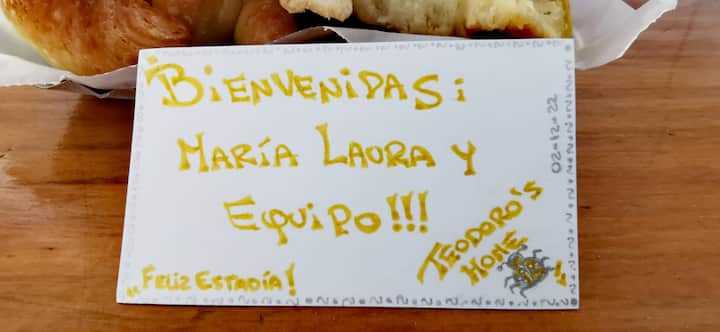 ¡BIENVENIDAS¡
MARÍA LAURA Y
EQUIPO!!!
"FELIZ ESTADÍA!
TEODORO'S
HOME
02-12-22